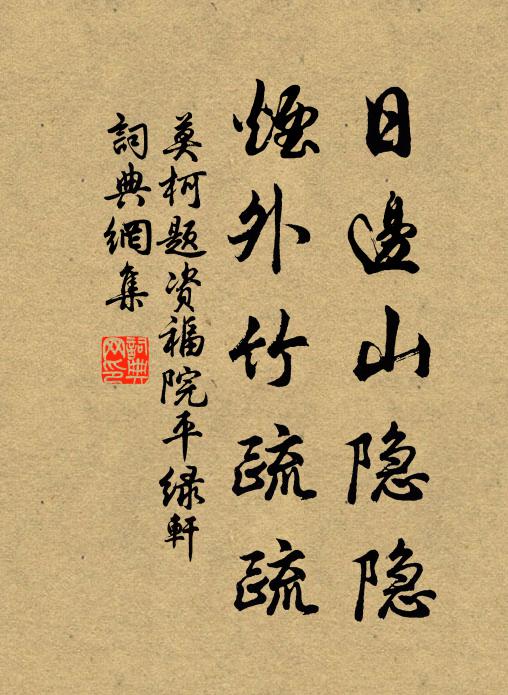 日邊山隐隐
煙外竹疏疏
莫柯题资福院平绿軒
詞典網集
詞典
网印